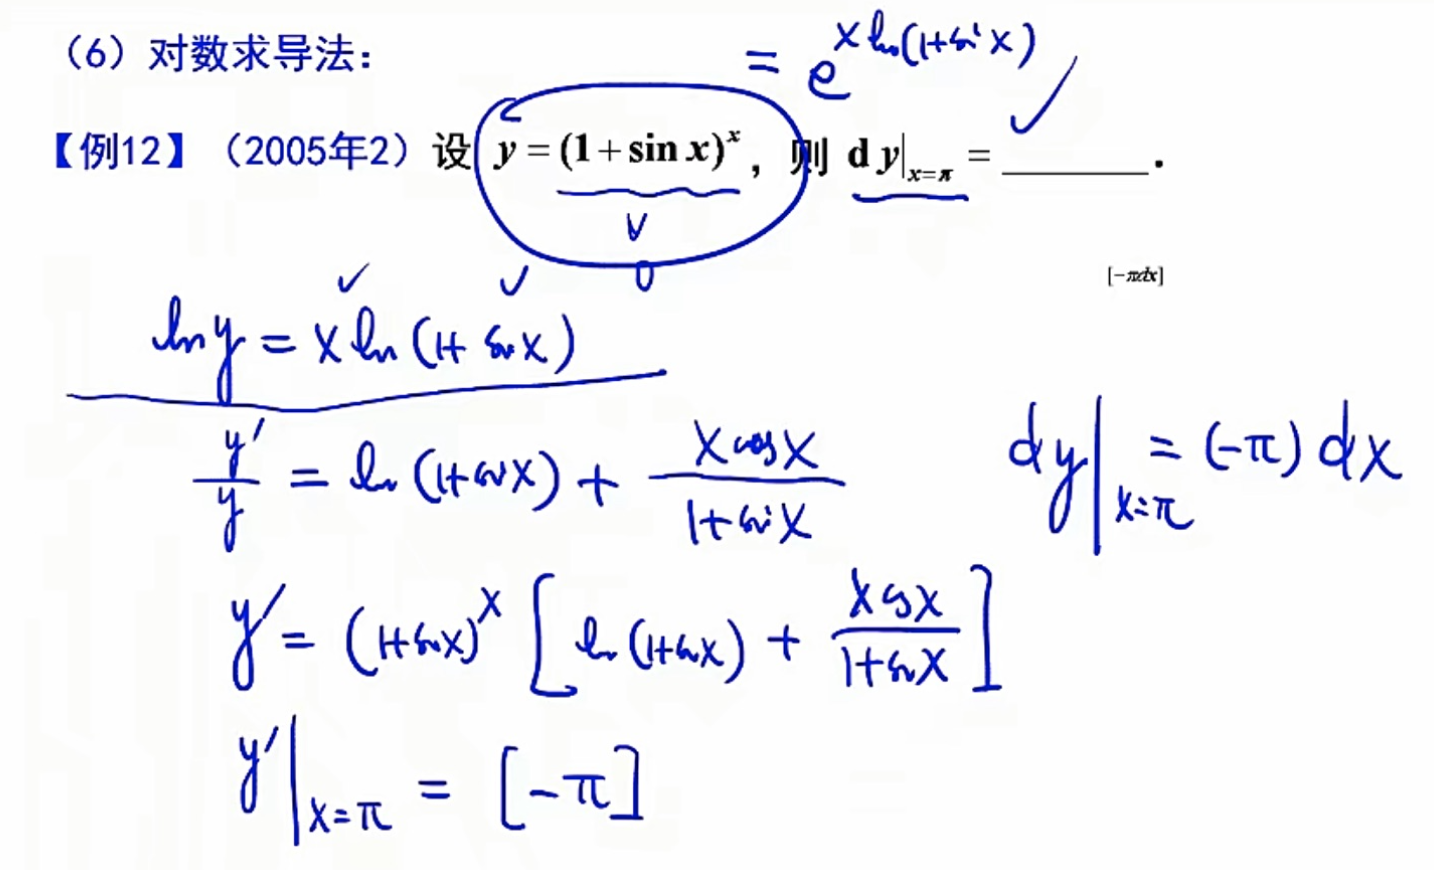 （6）对数求导法：
= e^{x ln(1+sin x)}
【例12】（2005年2）设 y = (1+sin x)^x ，则 dy|_{x=π} = ______ .
[-πdx]
ln y = x ln (1+ sin x)
y'/y = ln (1+sin x) + x cos x / 1+sin x
dy|_{x=π} = (-π) dx
y' = (1+sin x)^x [ ln (1+sin x) + x cos x / 1+sin x ]
y'|_{x=π} = [-π]